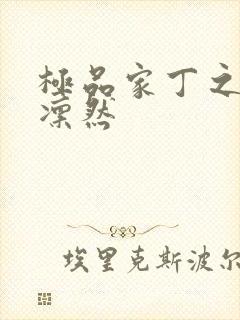 極品家丁之
凜然
埃里克斯波尔